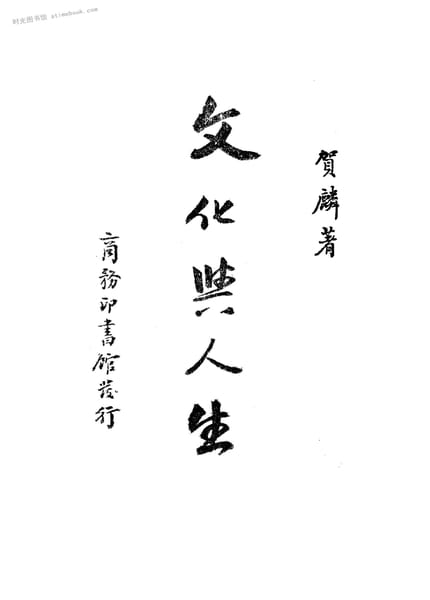 时光图书馆 atimebook.com
賀麟著
文化與人生
商務印書館發行